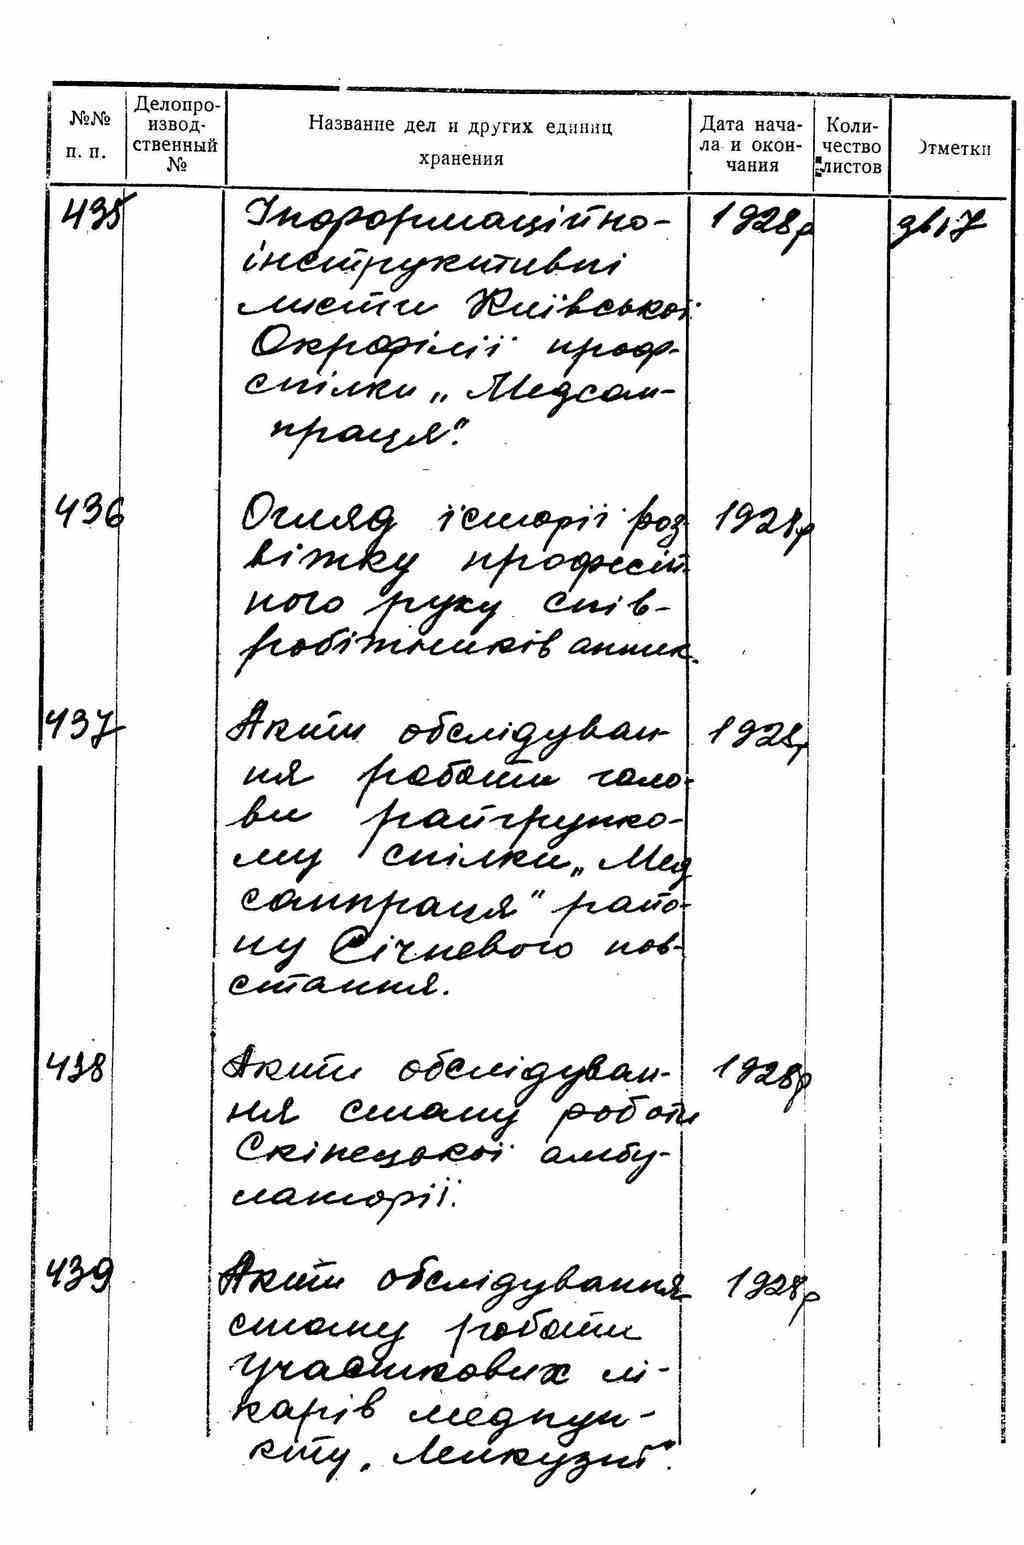 №№ п. п.
Делопро-
извод-
ственный
№
Название дел и других единиц
хранения
Дата нача-
ла и окон-
чания
Коли-
чество
листов
Отметки
435 Інформаційно- 1928р
інструктивні
листи Київської
Окрфілії проф-
спілки „Медсан-
праця".
436 Огляд історії роз- 1928р
вітку професій-
ного руху спів-
робітників аптек.
437 Акти обслідуван- 1928р
ня роботи голо-
ви райгрупко-
му спілки „Мед
санпраця" райо-
ну Січневого пов-
стання.
438 Акти обслідуван- 1928р
ня стану роботи
Скінецької амбу-
латорії.
439 Акти обслідування 1928р
стану роботи
участкових лі-
карів медпун-
кту